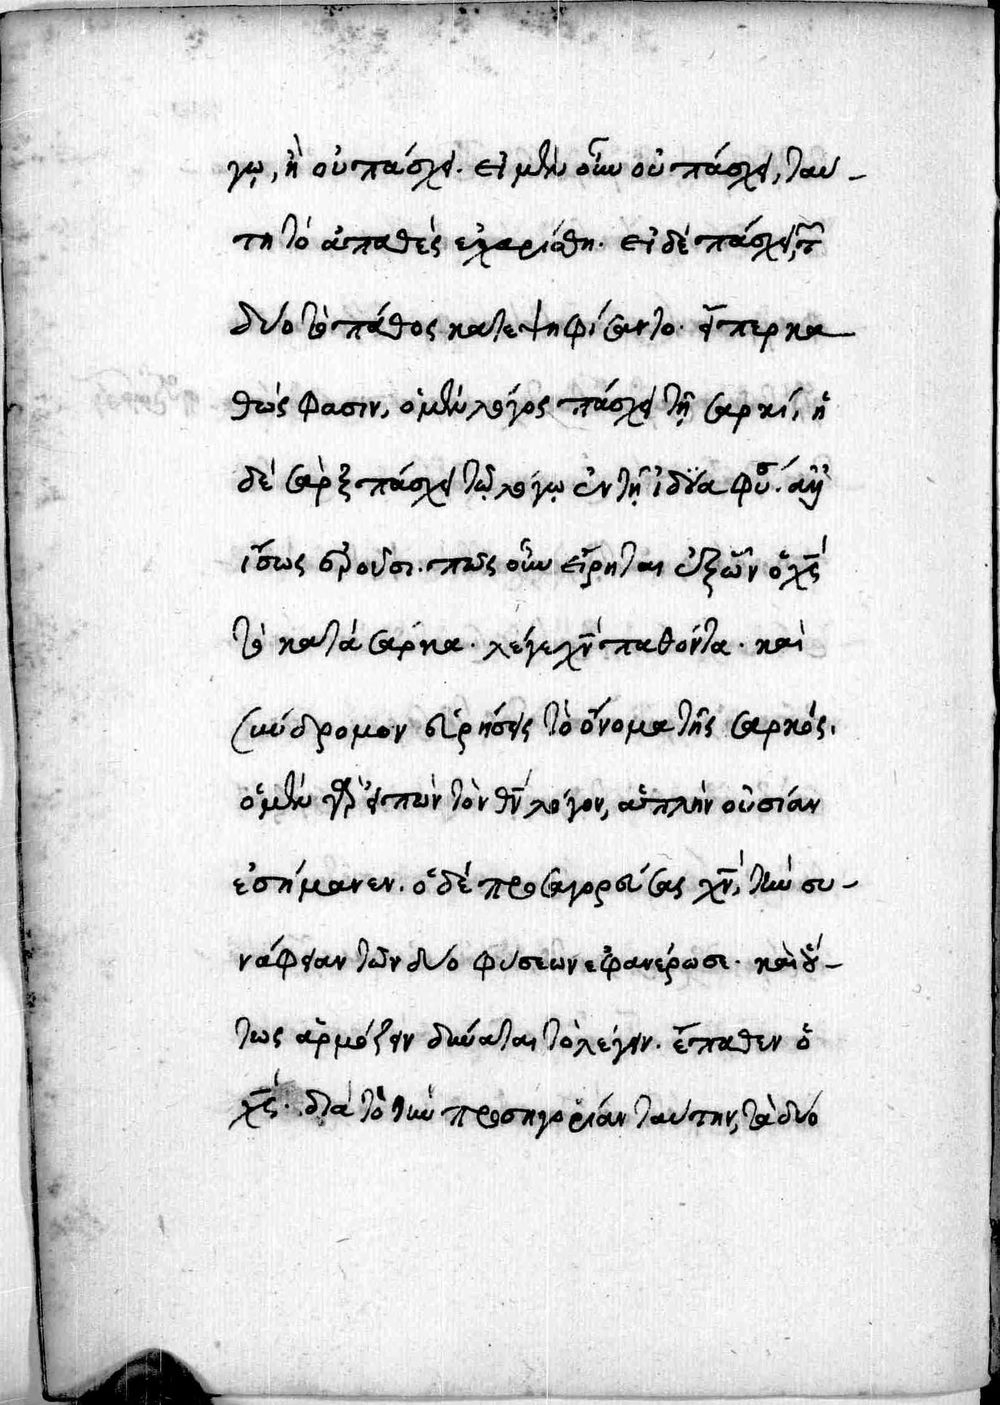 γῳ, ἢ οὐ πάσχει. εἰ μὲν οὖν οὐ πάσχει, ταύ-
τῃ τὸ ἀπαθὲς ἐχαρίσθη. εἰ δὲ πάσχει,
δύο τὸ πάθος κατεψηφίσαντο. εἴπερ κα
θώς φασιν, ὁ μὲν λόγος πάσχει τῇ σαρκί, ἡ
δὲ σὰρξ πάσχει τῷ λόγῳ ἐν τῇ ἰδίᾳ φύσ.
ἴσως ἐροῦσι. πῶς οὖν εἴρηται ἐξ ὧν ὁ χς
τὸ κατὰ σάρκα. λέγε χν παθόντα. καὶ
σύνδρομον εὑρήσεις τὸ ὄνομα τῆς σαρκός.
ὁ μὲν γὰρ εἰπὼν τὸν θν λόγον, ἁπλῆν οὐσίαν
ἐσήμανεν. ὁ δὲ προσαγορεύσας χν, τὴν συ-
νάφειαν τῶν δύο φύσεων ἐφανέρωσε. καὶ οὕ-
τως ἁρμόζειν δύναται τὸ λέγειν. ἔπαθεν ὁ
χς. διὰ τὸ τὴν προσηγορίαν ταύτην, τὰ δύο